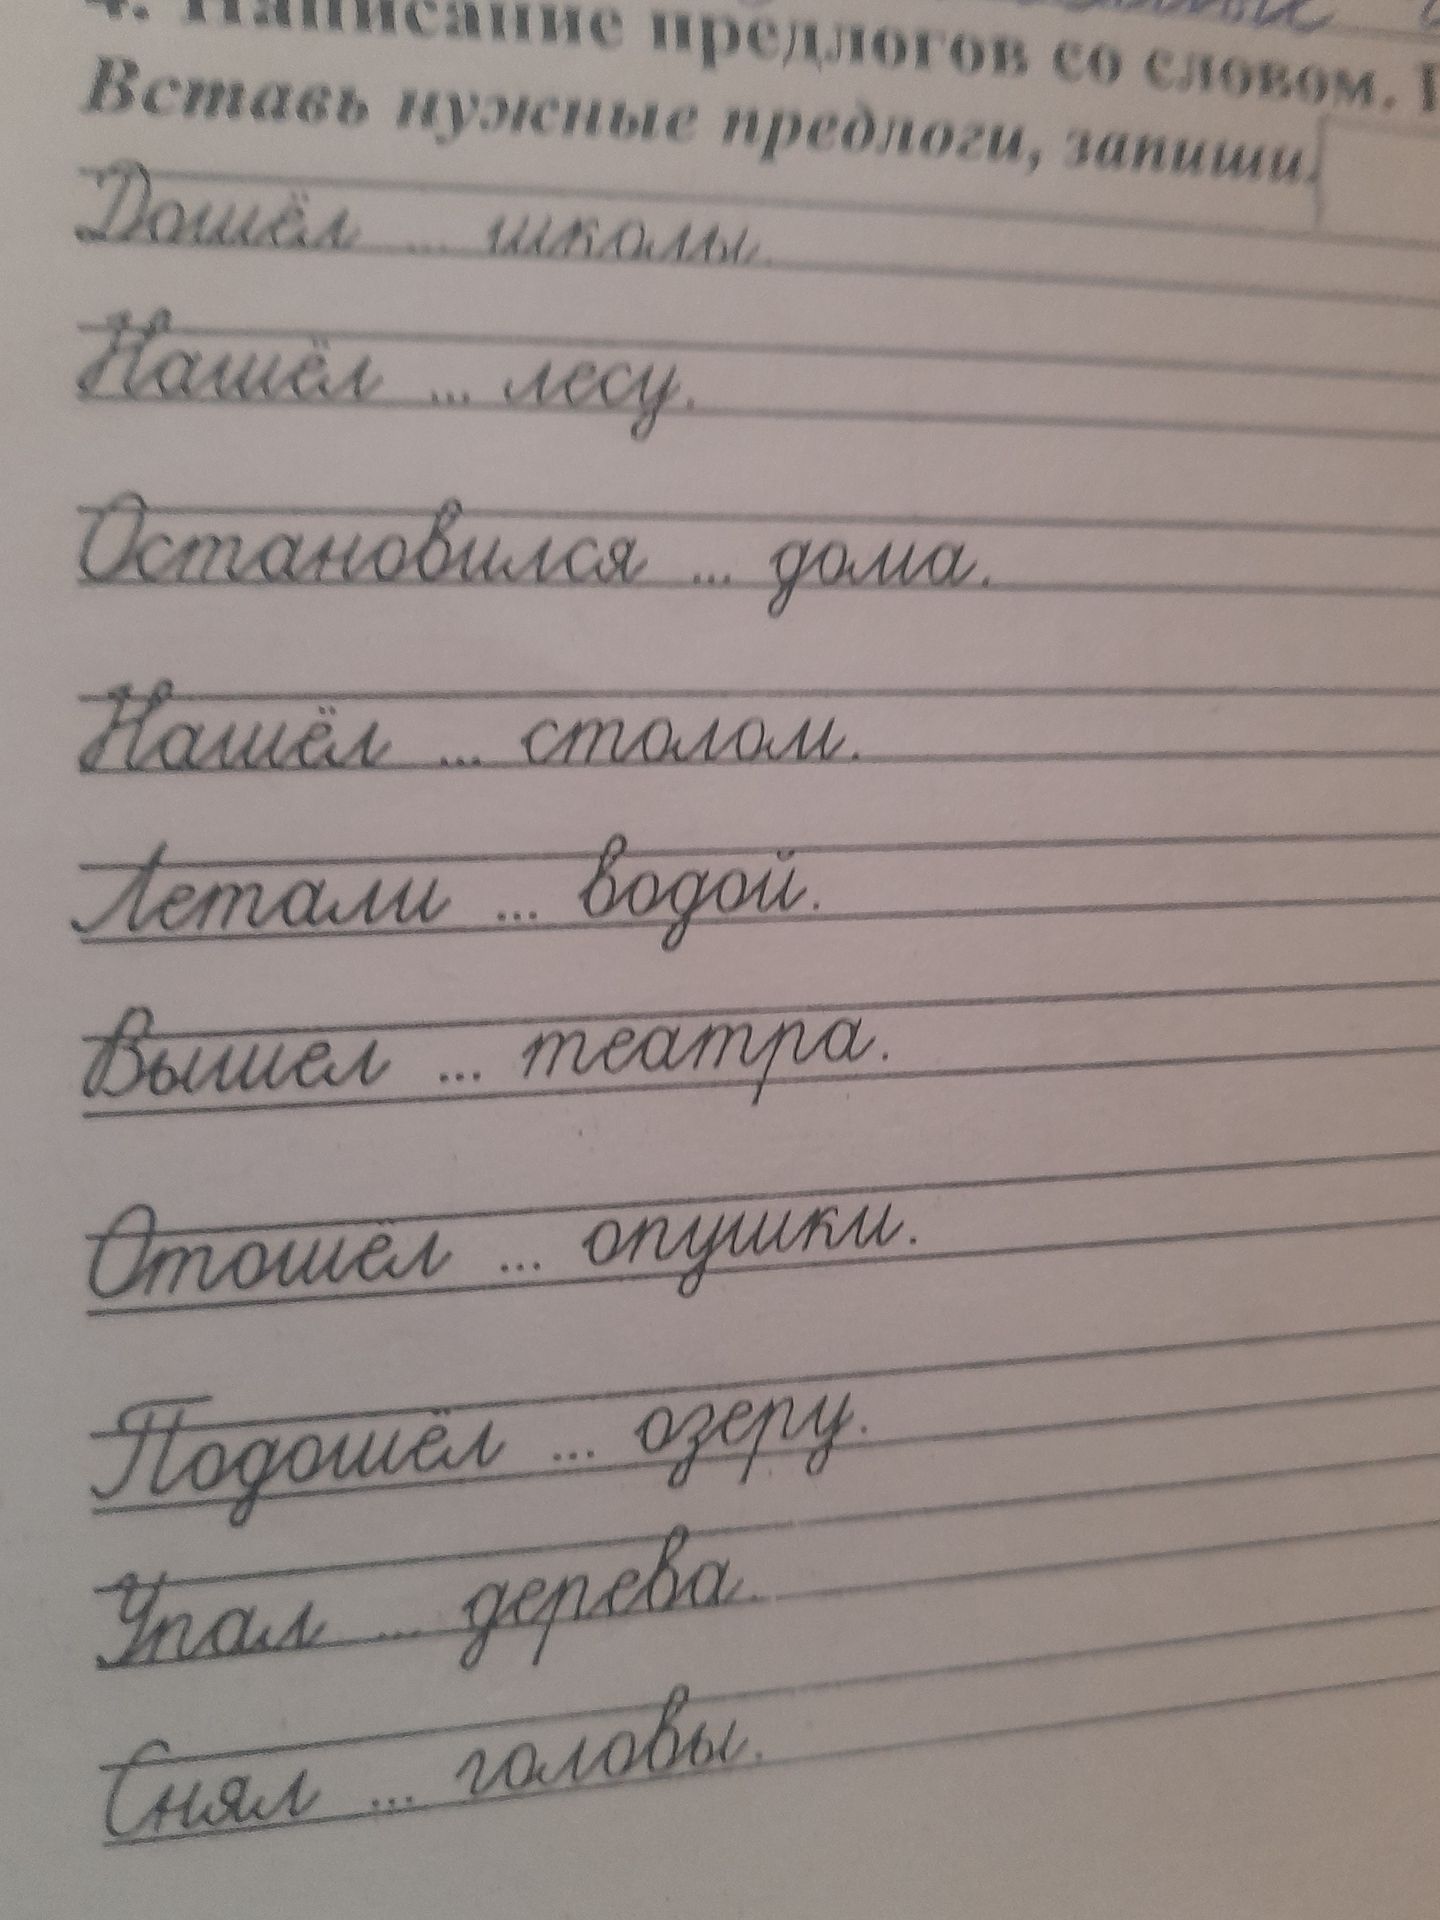 4. Написание предлогов со словом.
Вставь нужные предлоги, запиши.
Дошёл ... школы.
Нашёл ... лесу.
Остановился ... дома.
Нашёл ... столом.
Летали ... водой.
Вышел ... театра.
Отошёл ... опушки.
Подошёл ... озеру.
Упал ... дерева.
Снял ... головы.